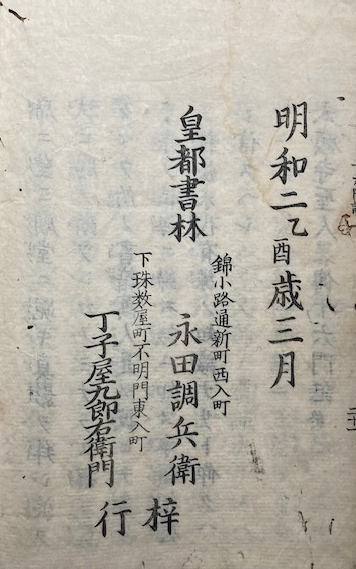 明和二乙酉歳三月
皇都書林
錦小路通新町西入町
永田調兵衛
下珠数屋町不明門東入町
丁子屋九郎右衛門
梓行